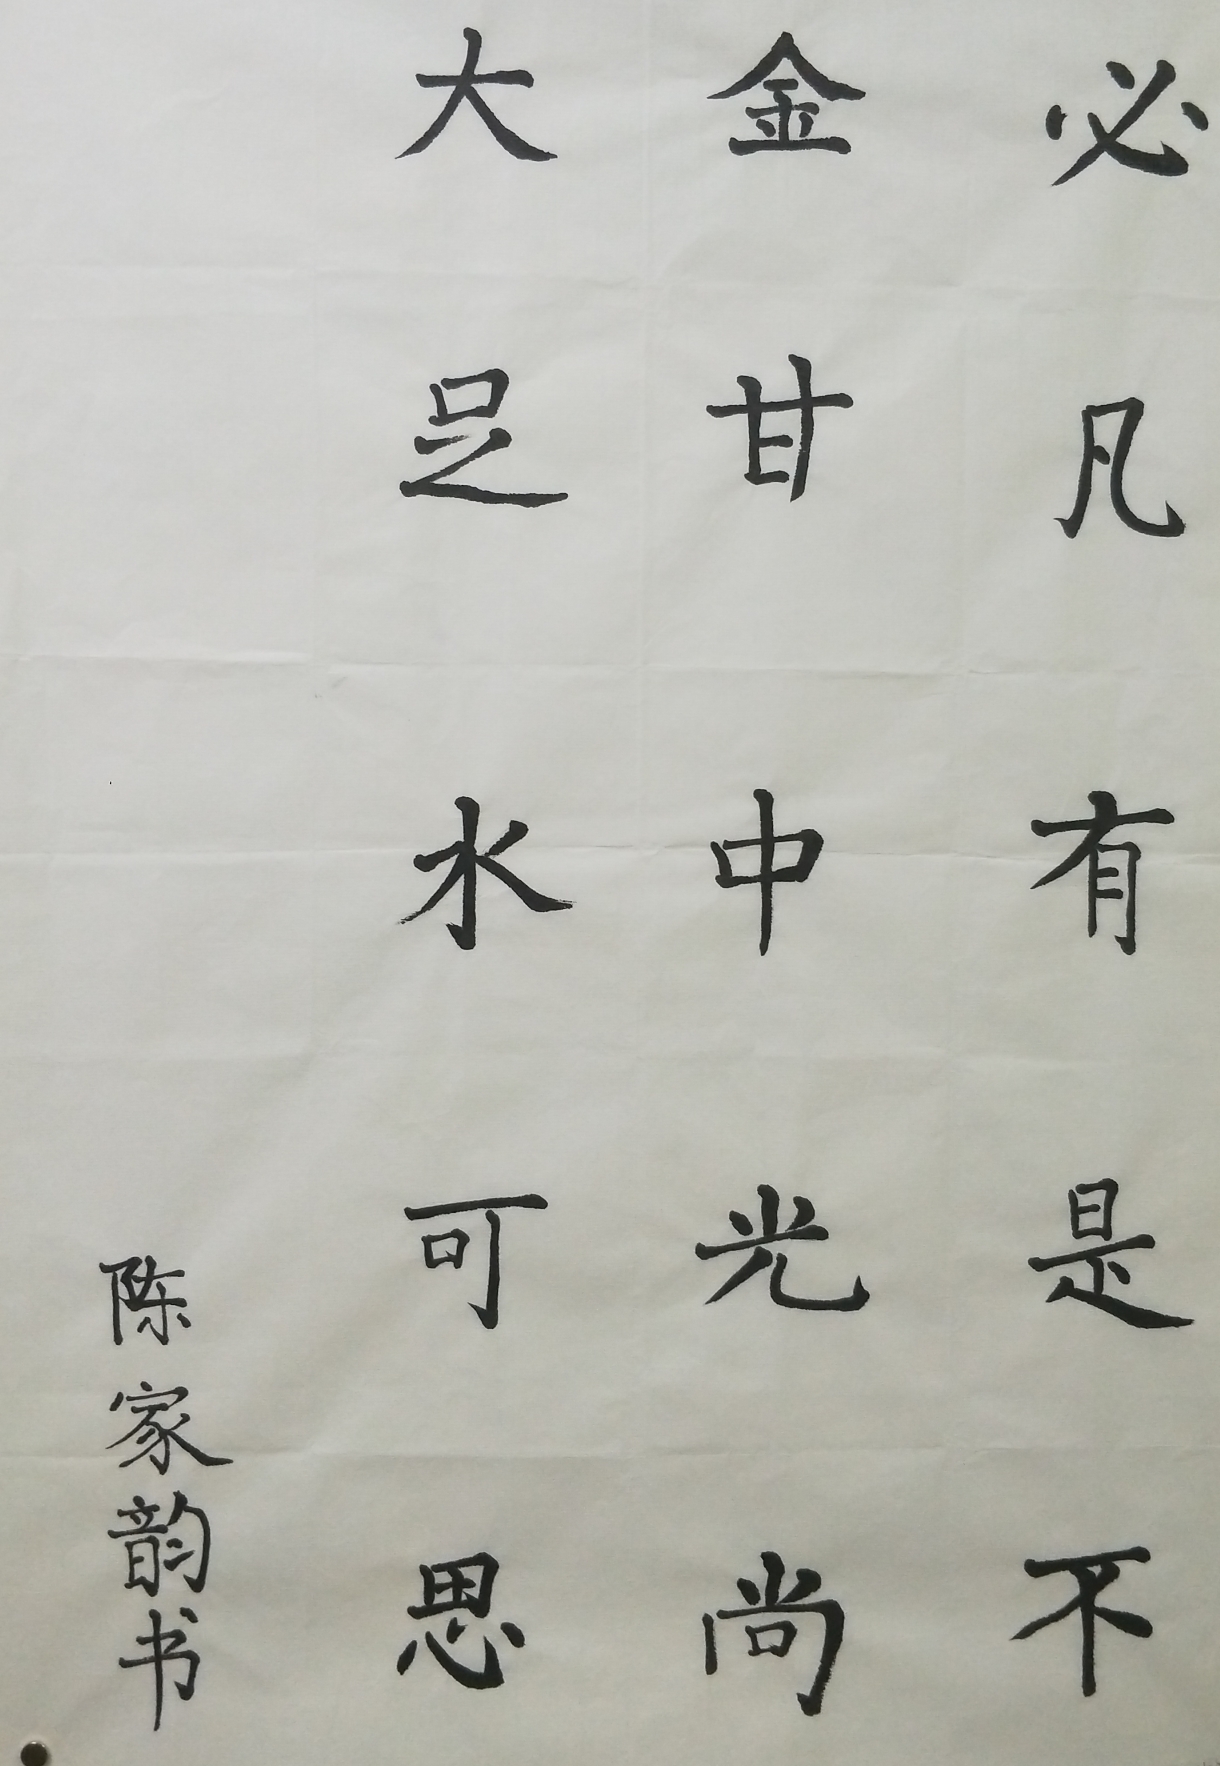 必凡有是不
金甘中光尚
大足水可思
陈家韵书